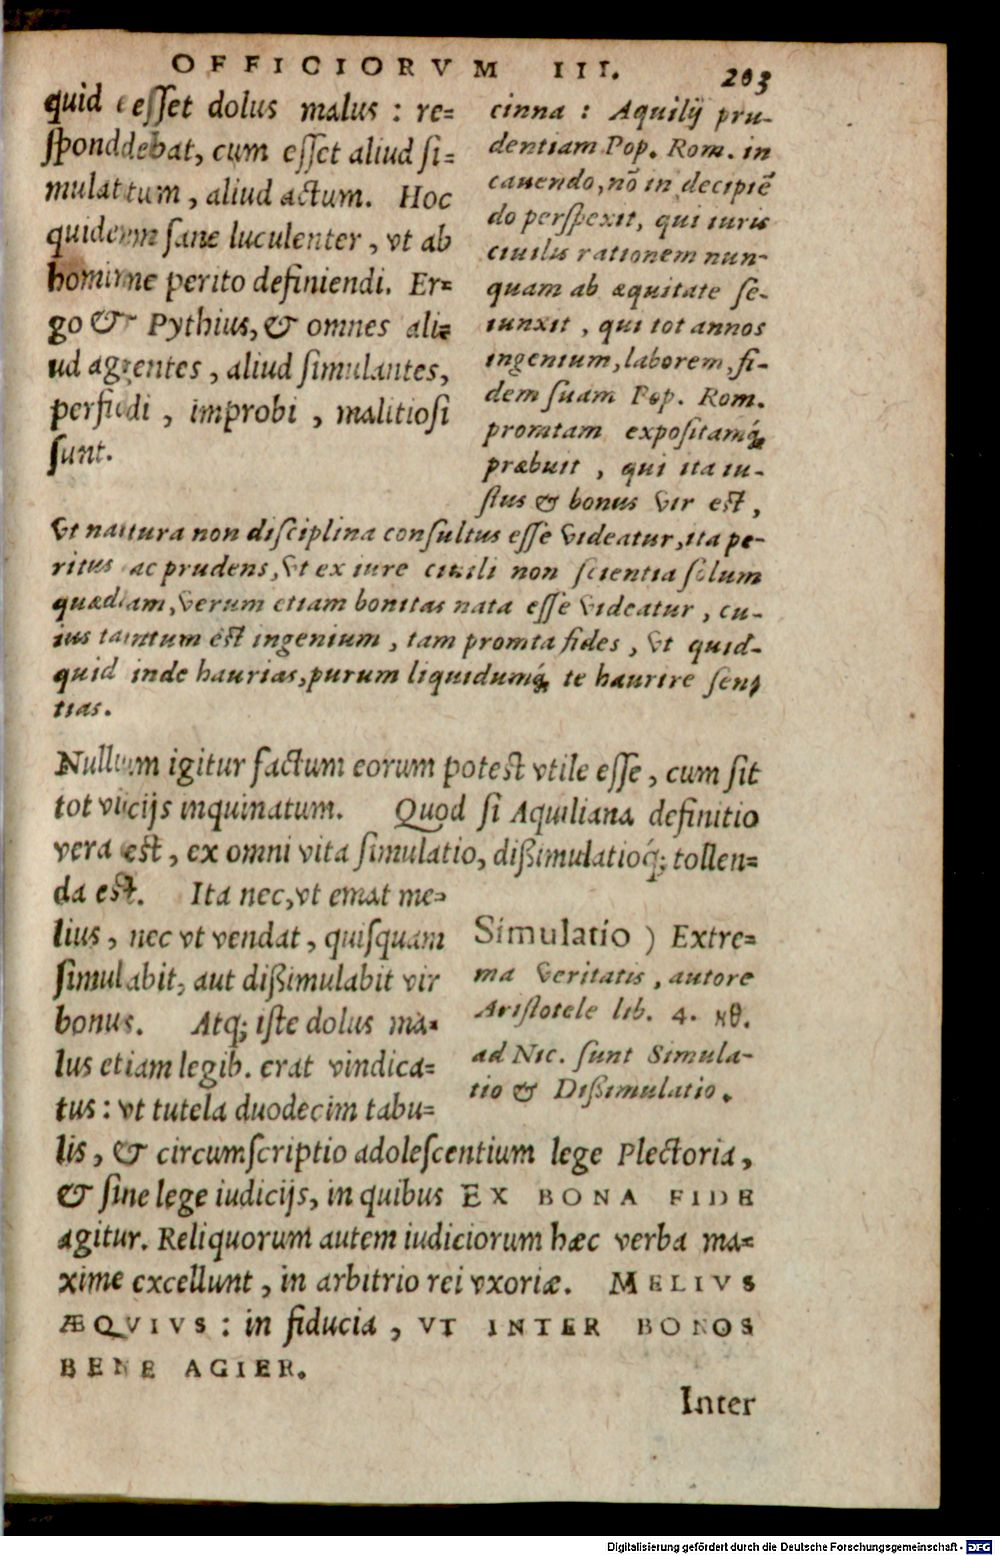 OFFICIORVM III. 203
quid esset dolus malus : re=
spondebat, cum esset aliud si=
mulatum, aliud actum. Hoc
quidem sane luculenter, vt ab
homine perito definiendi. Er=
go & Pythius, & omnes ali=
ud agentes, aliud simulantes,
perfidi, improbi, malitiosi
sunt.
cinna : Aquilij pru-
dentiam Pop. Rom. in
cauendo, nō in decipiē
do perspexit, qui iuris
ciuilis rationem nun-
quam ab æquitate se-
iunxit, qui tot annos
ingenium, laborem, fi-
dem suam Pop. Rom.
promtam expositamq́;
præbuit, qui ita iu-
stus & bonus vir est,
vt natura non disciplina consultus esse videatur, ita pe-
ritus ac prudens, vt ex iure ciuili non scientia solum
quædam, verum etiam bonitas nata esse videatur, cu-
ius tantum est ingenium, tam promta fides, vt quid-
quid inde haurias, purum liquidumq́; te haurire sen-
tias.
Nullum igitur factum eorum potest vtile esse, cum sit
tot vicijs inquinatum. Quod si Aquiliana definitio
vera est, ex omni vita simulatio, dißimulatioq́; tollen=
da est. Ita nec, vt emat me=
lius, nec vt vendat, quisquam
simulabit, aut dißimulabit vir
bonus. Atq; iste dolus ma=
lus etiam legib. erat vindica=
tus : vt tutela duodecim tabu=
Simulatio ) Extre=
ma veritatis, autore
Aristotele lib. 4. ηθ.
ad Nic. sunt Simula-
tio & Dißimulatio.
lis, & circumscriptio adolescentium lege Plectoria,
& sine lege iudicijs, in quibus EX BONA FIDE
agitur. Reliquorum autem iudiciorum hæc verba ma=
xime excellunt, in arbitrio rei vxoriæ. MELIVS
ÆQVIVS : in fiducia, VT INTER BONOS
BENE AGIER.
Inter
Digitalisierung gefördert durch die Deutsche Forschungsgemeinschaft - DFG